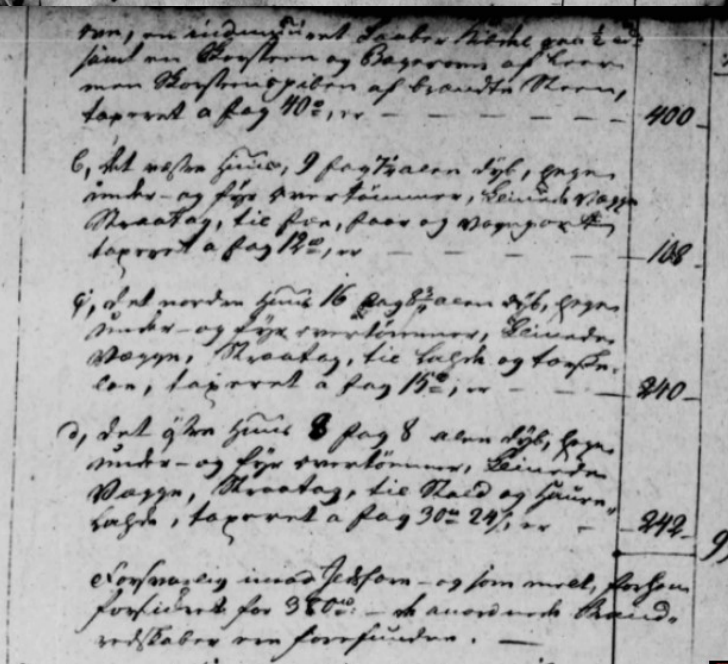 ovn, en indmuuret Kaaber Kiedel paa ½
samt en Skorsteen og Bagerovn af Leer
men Skorstenspiben af brændte Steen,
taxeret a fag 40 rd, er — 400
b, det vestre Huus, 9 fag 7½ alen dÿb, Eege
under- og fÿr overtømmer, kliinede Vægge
Straatag, til Føe, faar og vognport
taxeret a fag 12 rd, er — 108
c, det norden Huus 16 fag 8¾ alen dÿb, Eege
under- og fÿr overtømmer, kliinede
Vægge, Straatag, til Lahde og torske-
loe, taxeret a fag 15 rd, er — 240
d, det østre Huus 8 fag 8 alen dÿb, Eege
under- og fÿr overtømmer, kliinede
Vægge, Straatag, til Stald og
Lahde, taxeret a fag 30 rd 24 s, er — 242
Forsvarlig imod Ildsfare og som meldt, forhen
forsikret for 380 rd — de anordnede Brand-
redskaber ere forefunden. —